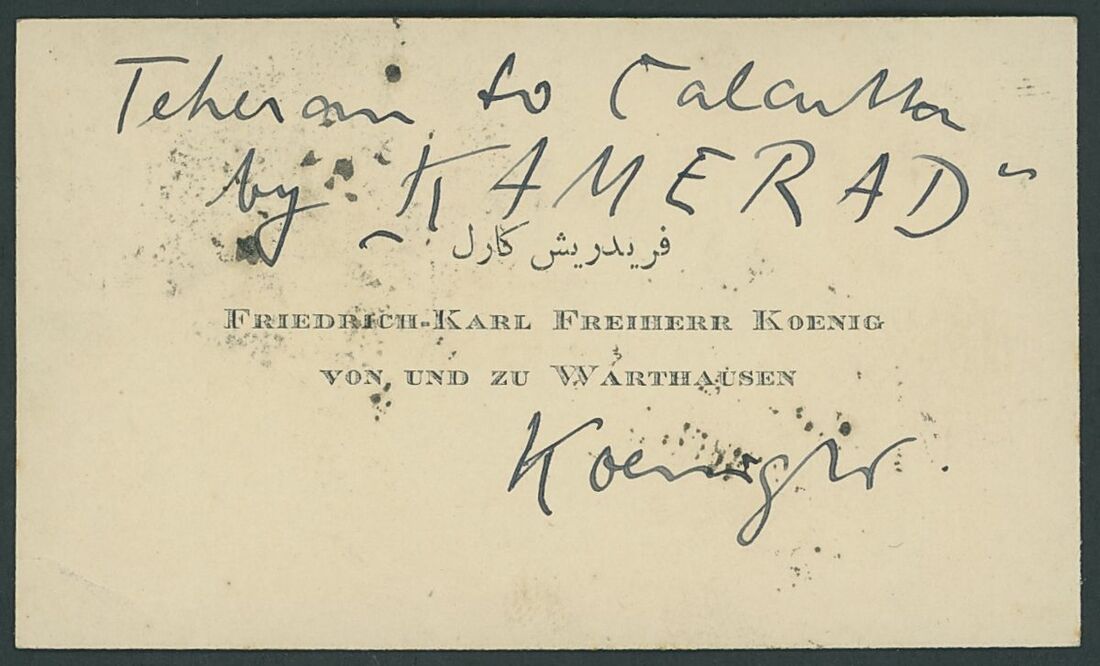 Teheran to Calcutta
by „KAMERAD"
فریدریش کارل
FRIEDRICH-KARL FREIHERR KOENIG
VON UND ZU WARTHAUSEN
KoenigW.